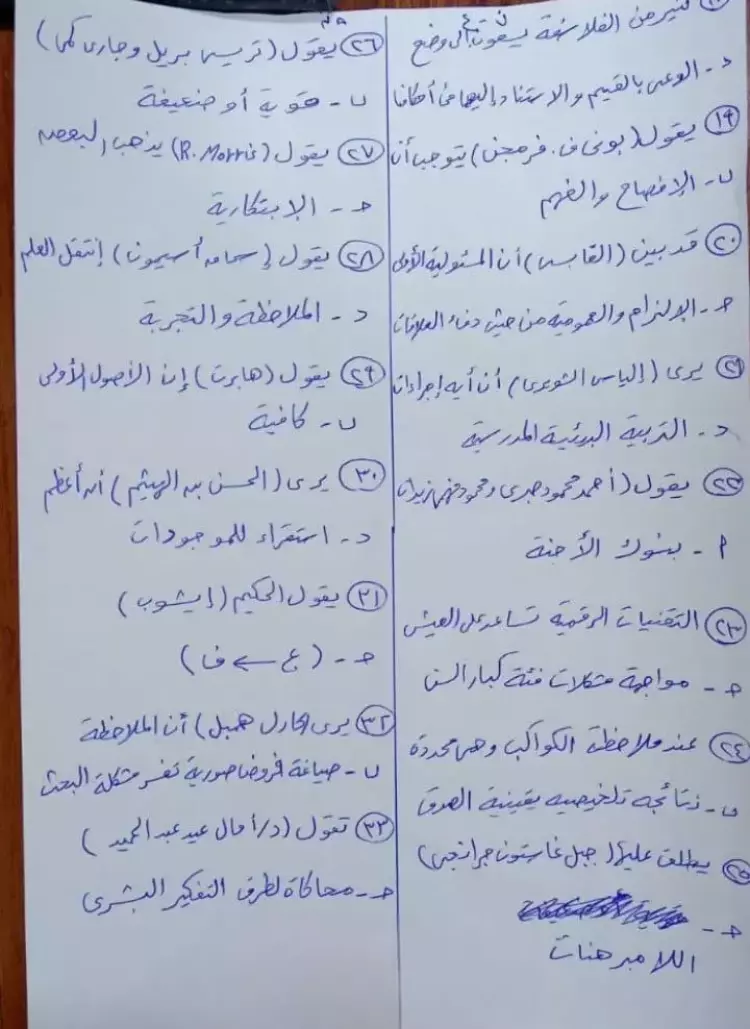 كثير من الفلاسفة يسعون إلى وضع
د- الوعى بالقيم والاستناد إليها فى أحكامنا
١٩ يقول (بونى ف. فرمجن) يتوجب أن
ب- الإفصاح والفهم
٢٠ قد بين (القابسى) أن المسئولية الأولى
ج- الإلتزام والعمومية من حيث دفء العلاقات
٢١ يرى (إلياس الشويرى) أن أية إجراءات
د- التربية البيئية المدرسية
٢٢ يقول (أحمد محمود صبرى ومحمود فهمى زيدان
أ- بنوك الأجنة
٢٣ التقنيات الرقمية تساعد على العيش
ج- مواجهة مشكلات فئة كبار السن
٢٤ عند ملاحظة الكواكب وهى محددة
ب- نتائجه تلخيصيه يقينية الصدق
٢٥ يطلق عليها (جيل غاستون جرانجى)
ج-
اللا مبرهنات
٢٦ يقول (تريسى بريل وجارى كمى)
ب- قوية أو ضعيفة
٢٧ يقول (R. Morris) يذهب البعض
ج- الإبتكارية
٢٨ يقول (إسحاق أسيمون) إنتقل العلم
د- الملاحظة والتجربة
٢٩ يقول (هابرت) إن الأصول الأولى
ب- كافية
٣٠ يرى (الحسن بن الهيثم) أن أعظم
د- استقراء للموجودات
٣١ يقول الحكيم (إيشوب)
ج- (ع ← ف)
٣٢ يرى (كارل همبل) أن الملاحظة
ب- صياغة فروض صورية تفسر مشكلة البحث
٣٣ تقول (د/ أمال عيد عبد الحميد)
ج- محاكاة لطرق التفكير البشرى